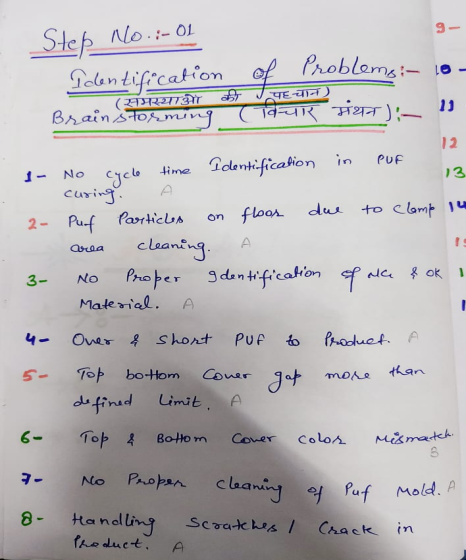 Step No.:- 01
Identification of Problems:-
(समस्याओ की पहचान)
Brainstorming (विचार मंथन):-
1- No cycle time Identification in PUF
curing. A
2- Puf Particles on floor due to Clamp
area cleaning. A
3- No Proper Identification of NG & OK
Material. A
4- Over & Short PUF to Product. A
5- Top bottom Cover gap more than
defined Limit. A
6- Top & Bottom Cover color Mismatch.
B
7- No Proper cleaning of Puf Mold. A
8- Handling Scratches / Crack in
Product. A
9-
10-
11
12
13
14